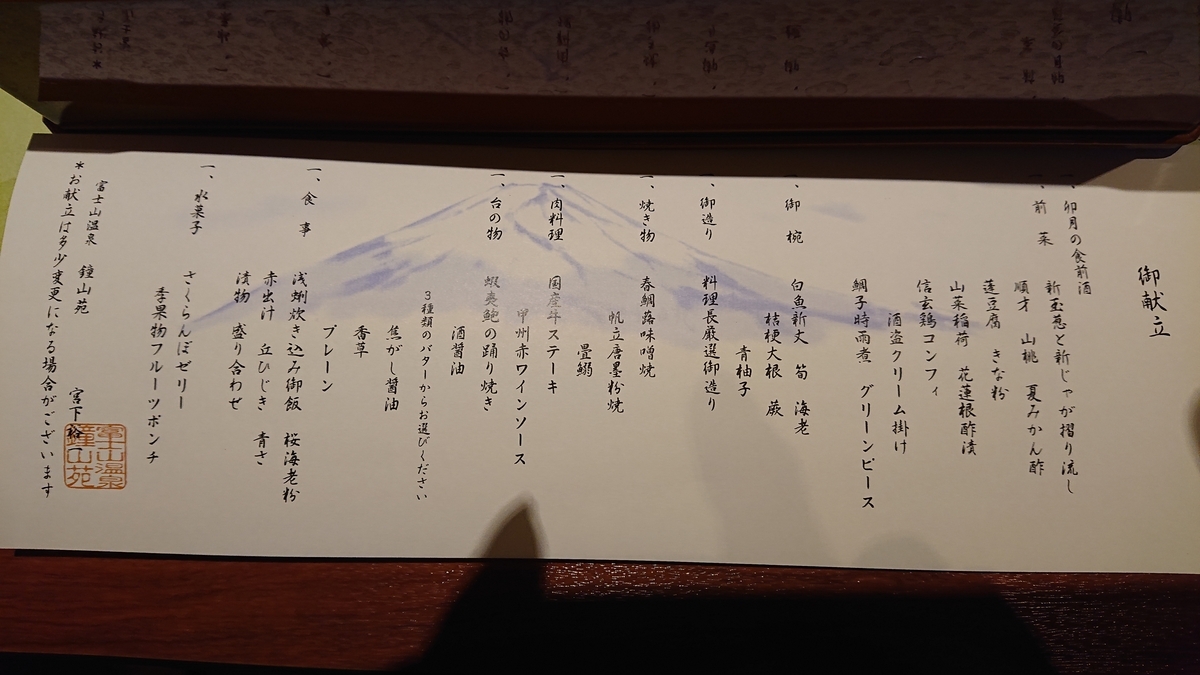 御献立
一、卯月の食前酒
一、前菜
新玉葱と新じゃが摺り流し
順才 山桃 夏みかん酢
蓬豆腐 きな粉
山菜稲荷 花蓮根酢漬
信玄鶏コンフィ
酒盗クリーム掛け
鯛子時雨煮 グリーンピース
一、御椀
白魚新丈 筍 海老
桔梗大根 蕨
青柚子
一、御造り
料理長厳選御造り
一、焼き物
春鯛蕗味噌焼
帆立唐墨粉焼
畳鰯
一、肉料理
国産牛ステーキ
甲州赤ワインソース
一、台の物
蝦夷鮑の踊り焼き
酒醤油
3種類のバターからお選びください
焦がし醤油
香草
プレーン
一、食事
浅蜊炊き込み御飯 桜海老粉
赤出汁 丘ひじき 青さ
漬物 盛り合わせ
一、水菓子
さくらんぼゼリー
季果物フルーツポンチ
富士山温泉 鐘山苑 宮下
富士山温泉
鐘山苑
*お献立は多少変更になる場合がございます